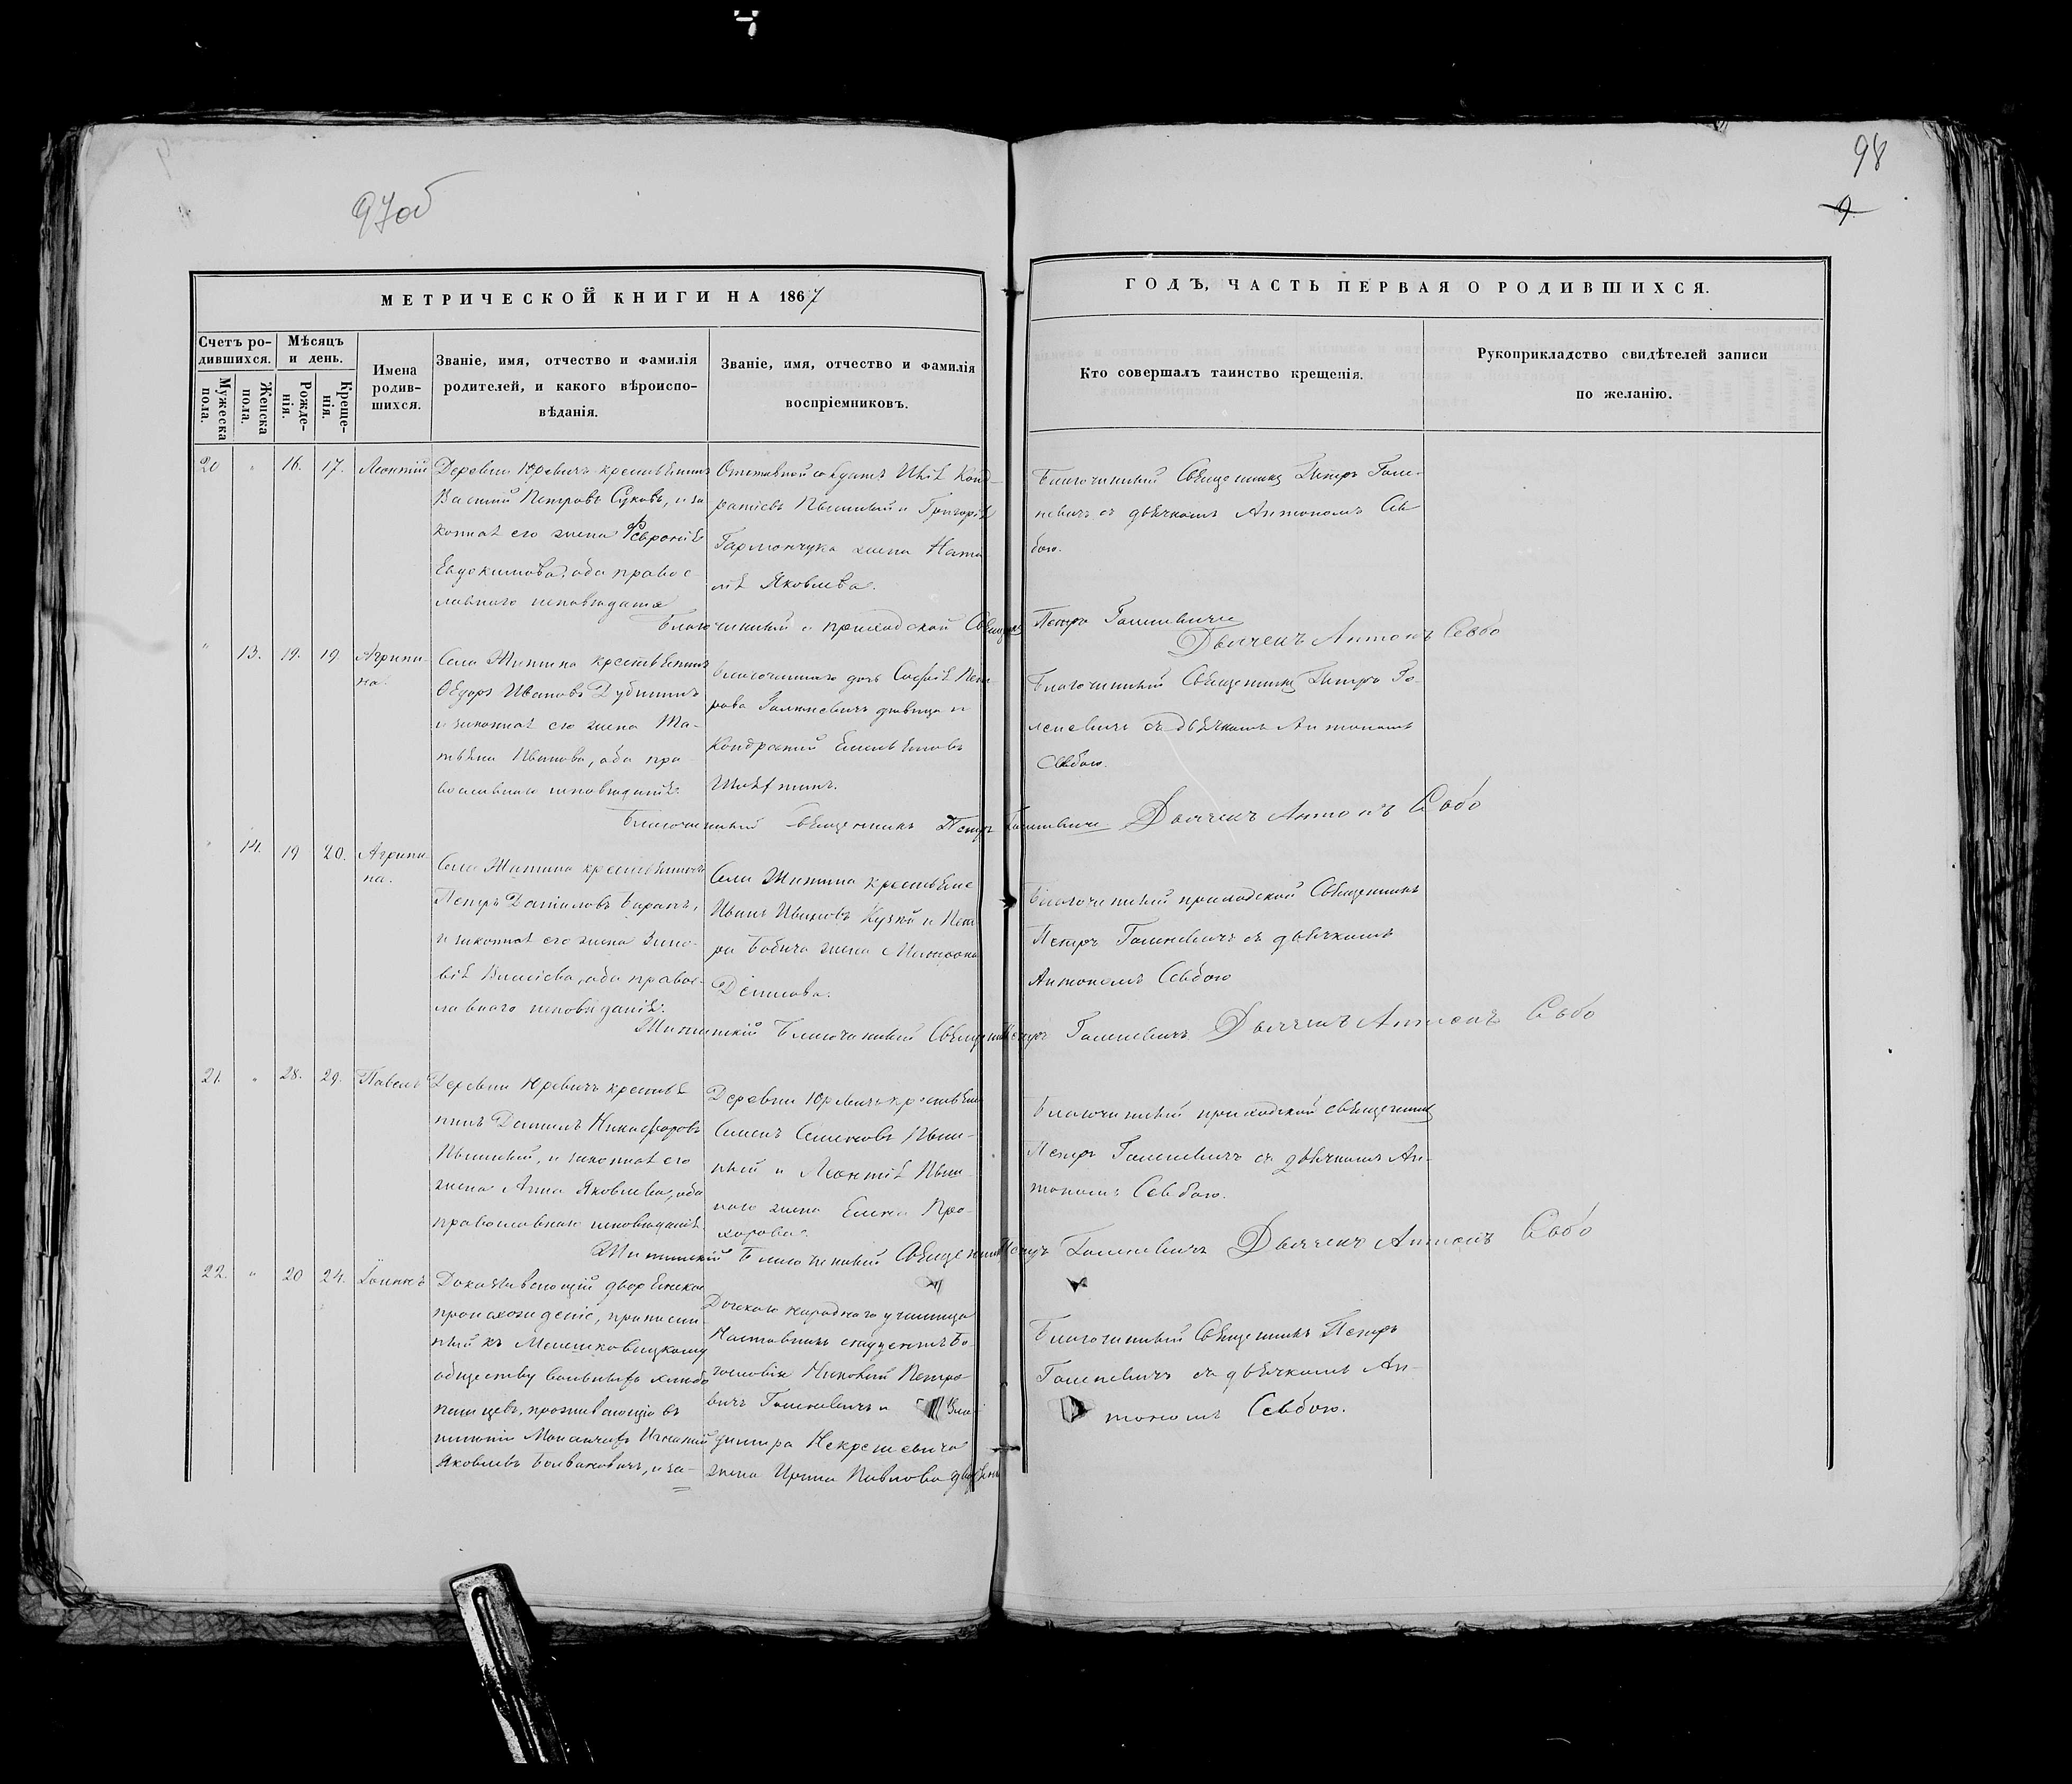 97об
98
9
МЕТРИЧЕСКОЙ КНИГИ НА 1867
ГОДЪ, ЧАСТЬ ПЕРВАЯ О РОДИВШИХСЯ.
Счетъ родившихся.
Мужеска пола.
Женска пола.
Мѣсяцъ и день.
Рожденія.
Крещенія.
Имена родившихся.
Званіе, имя, отчество и фамилія
родителей, и какого вѣроиспо-
вѣданія.
Званіе, имя, отчество и фамилія
воспріемниковъ.
Кто совершалъ таинство крещенія.
Рукоприкладство свидѣтелей записи
по желанію.
20 " 16. 17. Леонтій
Деревни Юревичъ крестьянинъ
Василій Петровъ Суковъ, и за
конная его жена Февронія
Евдокимова, оба правос
лавнаго исповѣданія
Отставной солдатъ Илія Конд-
ратіевъ Ившинъ и Григорія
Гармончука жена Ната
лія Яковлева.
Благочинный Священникъ Петръ Голе-
невичъ съ дьячкомъ Антономъ Са
бою.
Благочинный и приходской Священникъ Петръ Голеневичъ
Дьячекъ Антонъ Сабо
" 13. 19. 19. Агрипи-
на.
Села Житина крестьянинъ
Ѳедоръ Ивановъ Дубининъ
и законная его жена Та-
тьяна Иванова, оба пра
вославнаго исповѣданія.
Благочиннаго дочь Софія Пет-
рова Голеневичъ дѣвица и
Кондратій Емельяновъ
Благочинный Священникъ Петръ Го-
леневичъ съ дьячкомъ Антономъ
Сабою.
Благочинный священникъ Петръ Голеневичъ Дьячекъ Антонъ Сабо
" 14. 19 20. Агрипи-
на.
Села Житина крестьянинъ
Петръ Даниловъ Баранъ,
и законная его жена Зино-
вія Власіева, оба правос-
лавнаго исповѣданія.
Села Житина крестьяне
Иванъ Ивановъ Кузнй и Пет
ра Бобича жена Матрона
Благочинный приходской Священникъ
Петръ Голеневичъ съ дьячкомъ
Антономъ Сабою
Житинскій Благочинный Священникъ Петръ Голеневичъ Дьячекъ Антонъ Сабо
21. " 28. 29. Павелъ
Деревни Юревичъ крестья
нинъ Даніилъ Никифоровъ
Ившинъ, и законная его
жена Анна Яковлева, оба
православнаго исповѣданія
Деревни Юревичъ крестьяне
Семенъ Семеновъ
жена Елена Про-
хорова.
Благочинный приходской священникъ
Петръ Голеневичъ съ дьячкомъ Ан-
тономъ Сабою.
Житинскій Благочинный Священникъ Петръ Голеневичъ Дьячекъ Антонъ Сабо
22. " 20 24. Іоаннъ
Доказывающій дворянское
происхожденіе, приписан
ный къ
обществу вольныхъ хлѣбо
пашцевъ, проживающій въ
имѣніи Игнатій
Яковлевъ Болвановичъ, и за-
народнаго училища
Наставникъ студентъ Бо-
гословія Николай Петро
вичъ Голеневичъ и Вла-
диміра Некрашевича
жена Ирина Павлова дворян
Благочинный Священникъ Петръ
Голеневичъ съ дьячкомъ Ан-
тономъ Сабою.